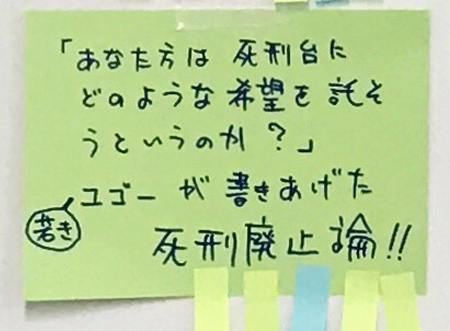 「あなた方は 死刑台に
どのような希望を託そ
うというのか?」
若き
ユゴーが書きあげた
死刑廃止論!!